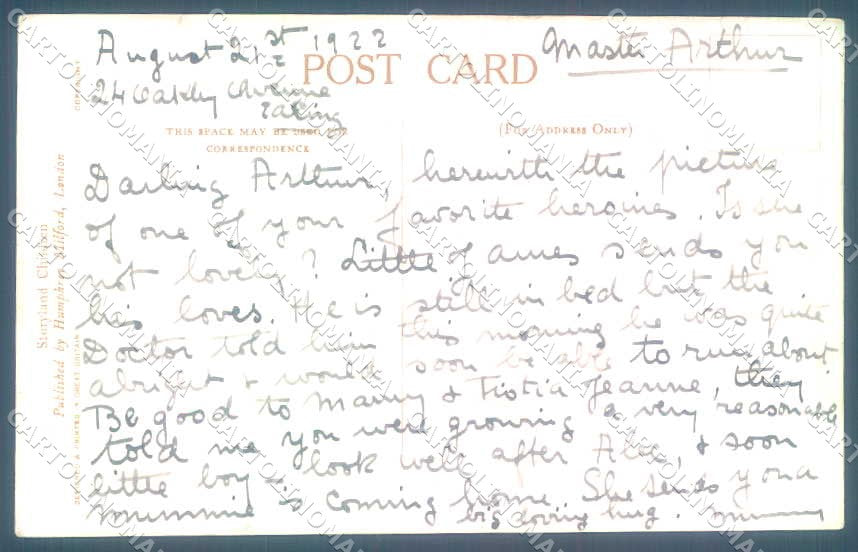 August 21st 1922
Master Arthur
POST CARD
24 Oakley Avenue
Ealing
THIS SPACE MAY BE USED FOR
CORRESPONDENCE
(FOR ADDRESS ONLY)
Darling Arthur, herewith the picture
of one of your favorite heroines. Is she
not lovely? Little James sends you
his loves. He is still in bed but the
Doctor told him this morning he was quite
alright & would soon be able to run about
Be good to Mamy & Tiotia Jeanne, they
told me you were growing a very reasonable
little boy - look well after Alec, & soon
mummie is coming home. She sends you a
big loving hug.
Storyland Children
Published by Humphrey Milford, London
DESIGNED & PRINTED IN GREAT BRITAIN
COPYRIGHT
CARTOLINOMANIA